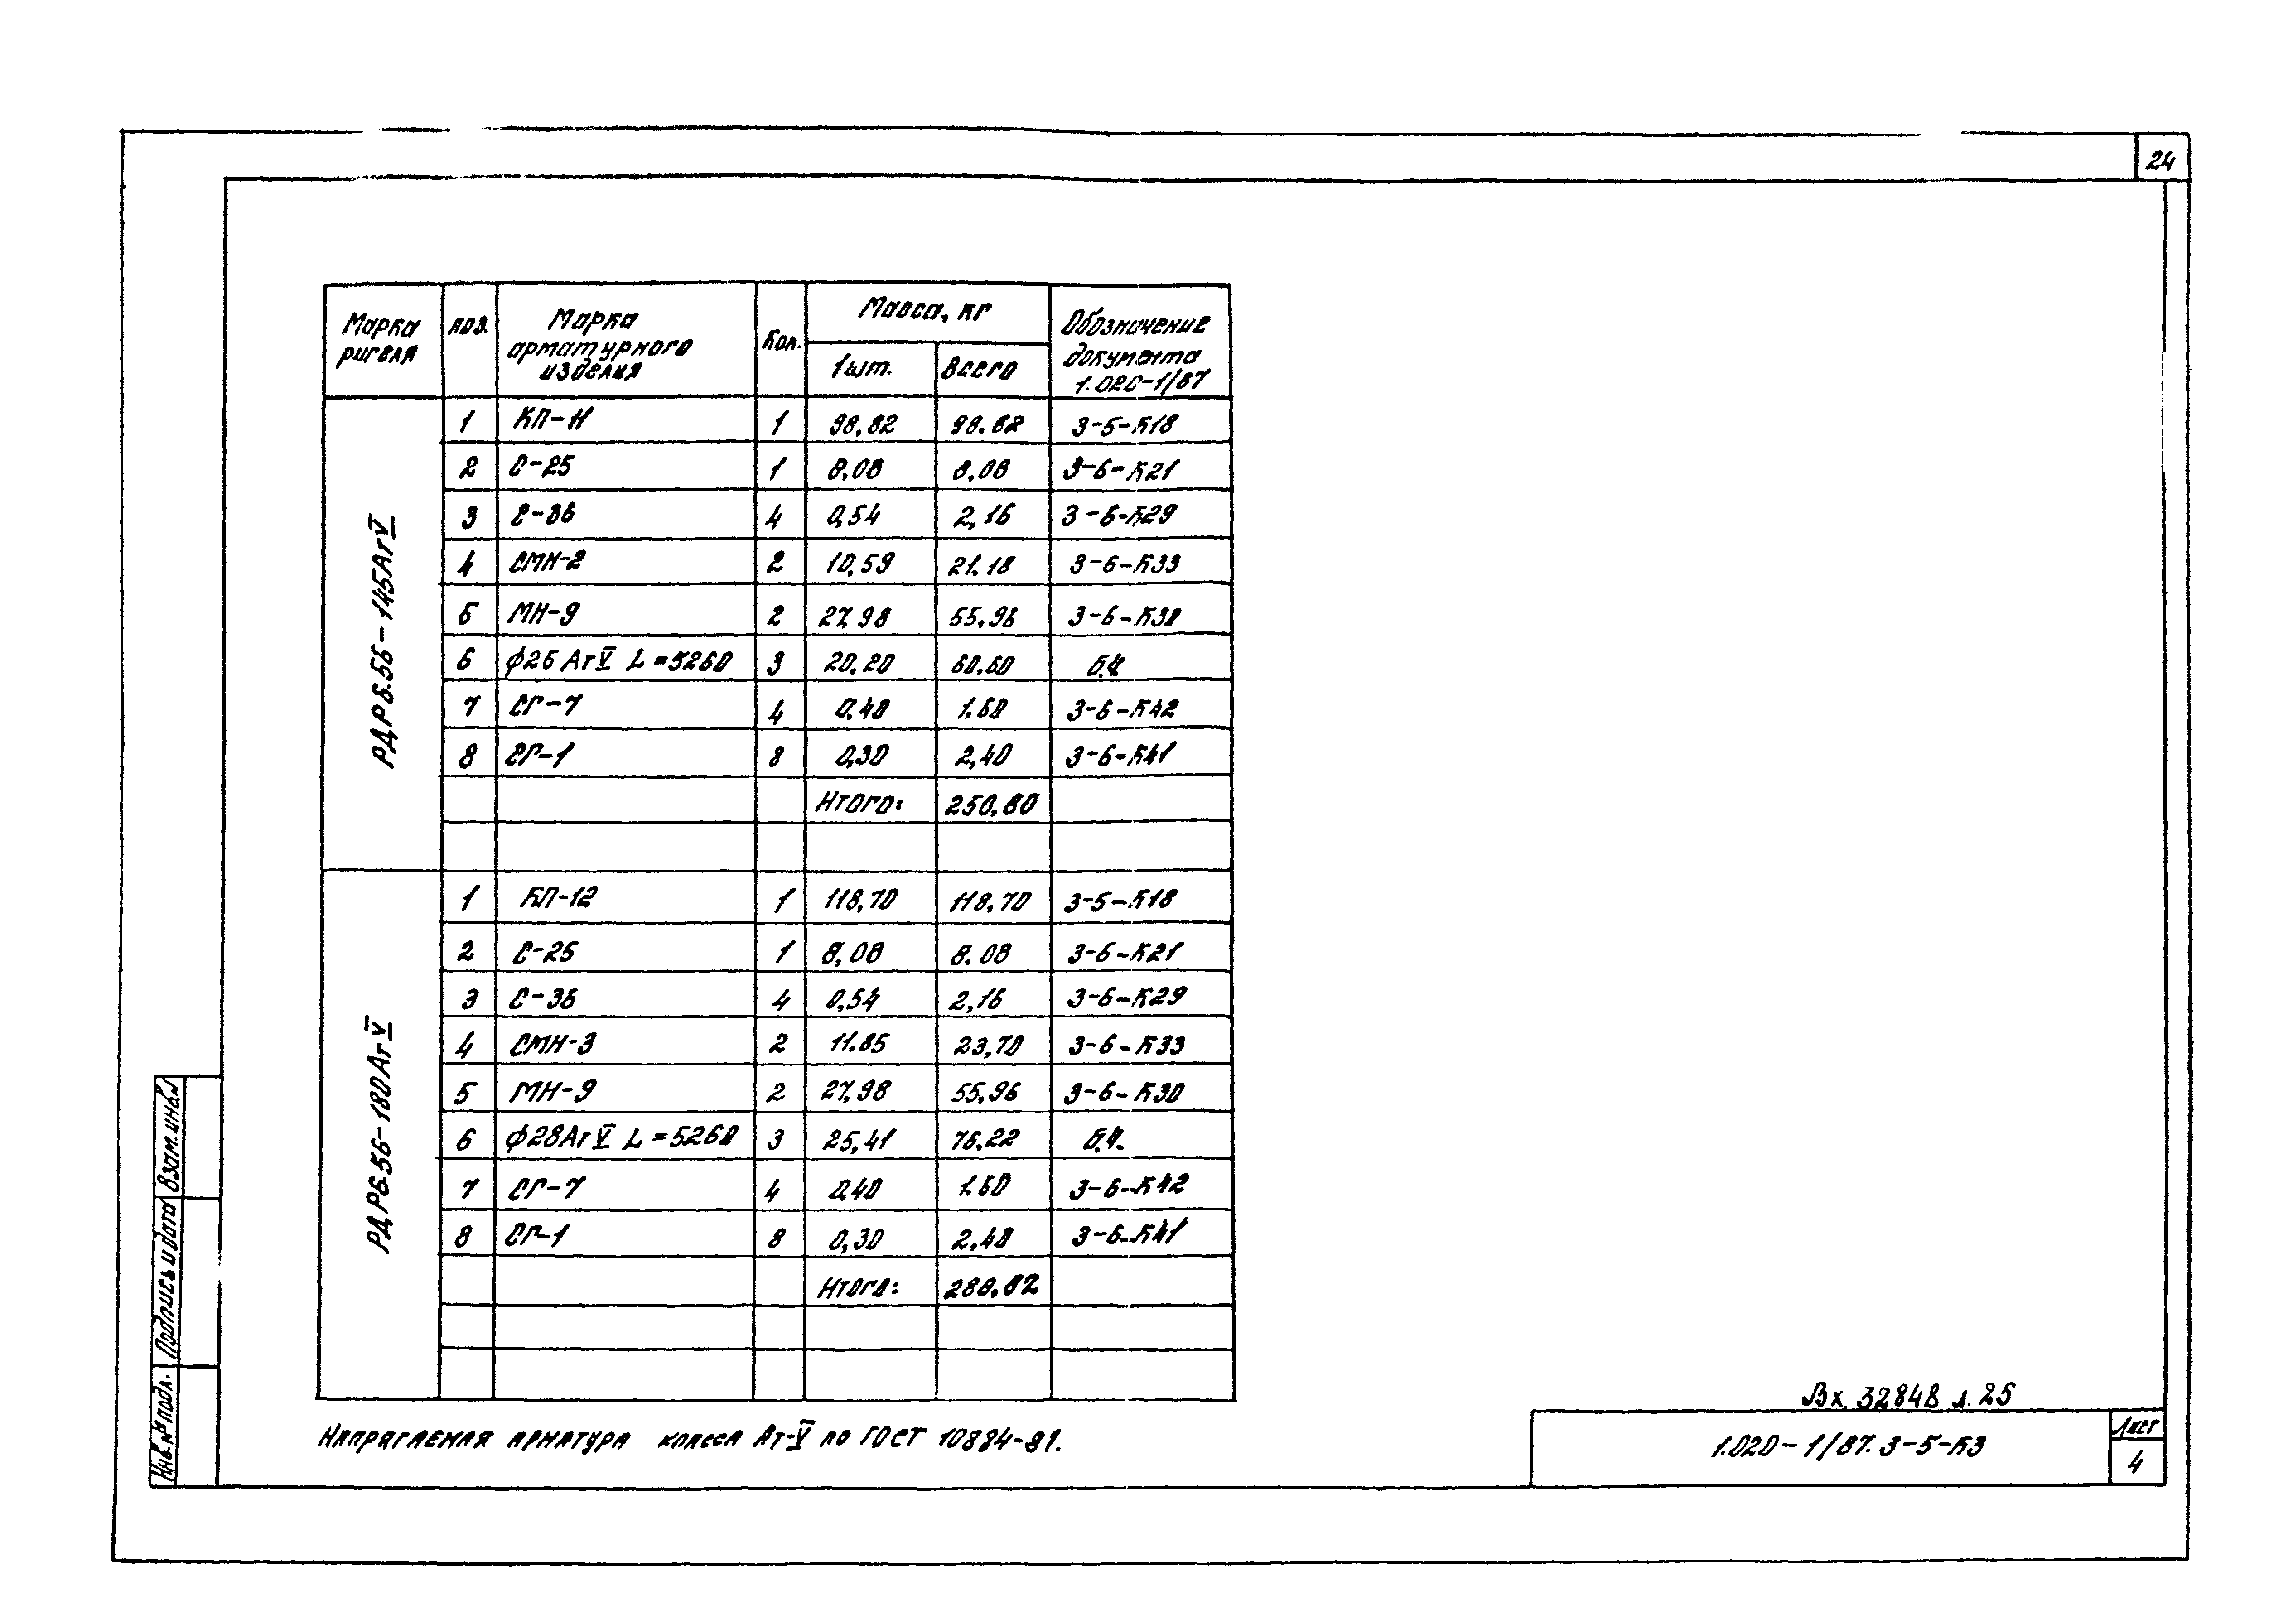 24
Марка ригеля | поз. | Марка арматурного изделия | Кол. | Масса, кг | Обозначение документа 1.020-1/87
1шт. | Всего
РДР6.56-145АтV
1 | КП-11 | 1 | 98,82 | 98.82 | 3-5-К18
2 | С-25 | 1 | 8,08 | 8,08 | 3-6-К21
3 | С-36 | 4 | 0,54 | 2,16 | 3-6-К29
4 | СМН-2 | 2 | 10,59 | 21.18 | 3-6-К33
5 | МН-9 | 2 | 27,98 | 55,96 | 3-6-К38
6 | ф26 АтV L=5260 | 3 | 20,20 | 60.60 | б.ч.
7 | СГ-7 | 4 | 0,40 | 1.60 | 3-6-К42
8 | СГ-1 | 8 | 0,30 | 2,40 | 3-6-К41
Итого: 250,80
РДР6.56-180АтV
1 | КП-12 | 1 | 118,70 | 118,70 | 3-5-К18
2 | С-25 | 1 | 8,08 | 8.08 | 3-6-К21
3 | С-36 | 4 | 0,54 | 2,16 | 3-6-К29
4 | СМН-3 | 2 | 11.85 | 23,70 | 3-6-К33
5 | МН-9 | 2 | 27,98 | 55,96 | 3-6-К30
6 | ф28АтV L=5260 | 3 | 25,41 | 76,22 | б.ч.
7 | СГ-7 | 4 | 0,40 | 1.60 | 3-6-К42
8 | СГ-1 | 8 | 0,30 | 2,40 | 3-6-К41
Итого: 288,82
Напрягаемая арматура класса Ат-V по ГОСТ 10884-81.
Вх. 32848 л. 25
1.020-1/87. 3-5-К3
Лист
4
Взам.инв.№
Подпись и дата
Инв.№ подл.